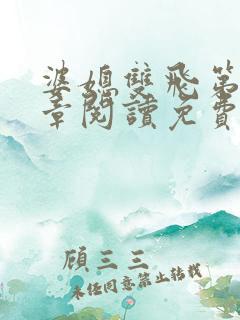 婆媳雙飛第
章閱讀免費
顧三三
未經同意禁止轉載